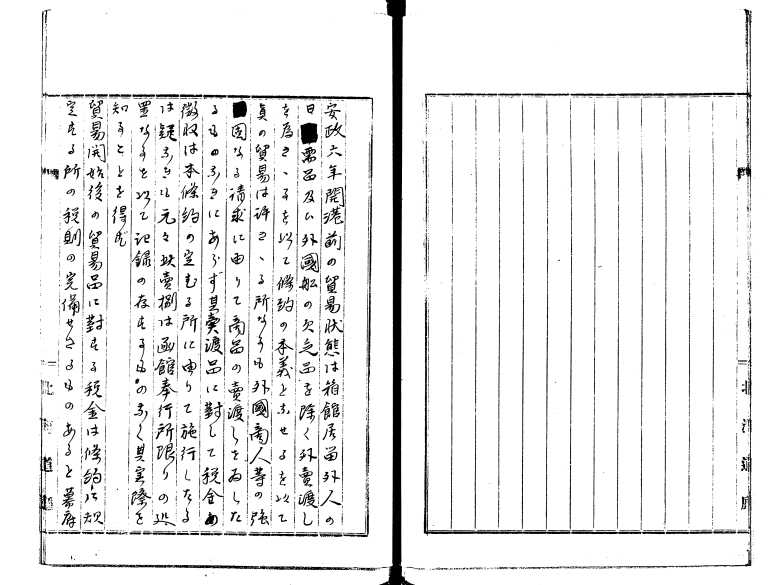 安政六年開港前の貿易状態は箱館居留外人の
日需品及ひ外國船の欠乏品を除く外賣渡し
を為さゝるを以て條約の本義となせるを以て
貞の貿易は許さゝる所なるも外國商人等の強
固なる請求に由りて商品の賣渡しをゐした
るものなきにあらず其賣渡品に對して税金の
徴収は本條約の定むる所に由りて施行したる
は疑なきも元々此賣捌は函館奉行所限りの処
置なるを以て記録の存するものなく其実際を
知ることを得ず
貿易開始後の貿易品に對する税金は條約に規
定する所の税則の完備せさるものあると幕府
北海道廳
北海道廳